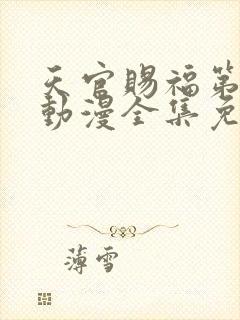 天官赐福第
動漫全集免
薄雪